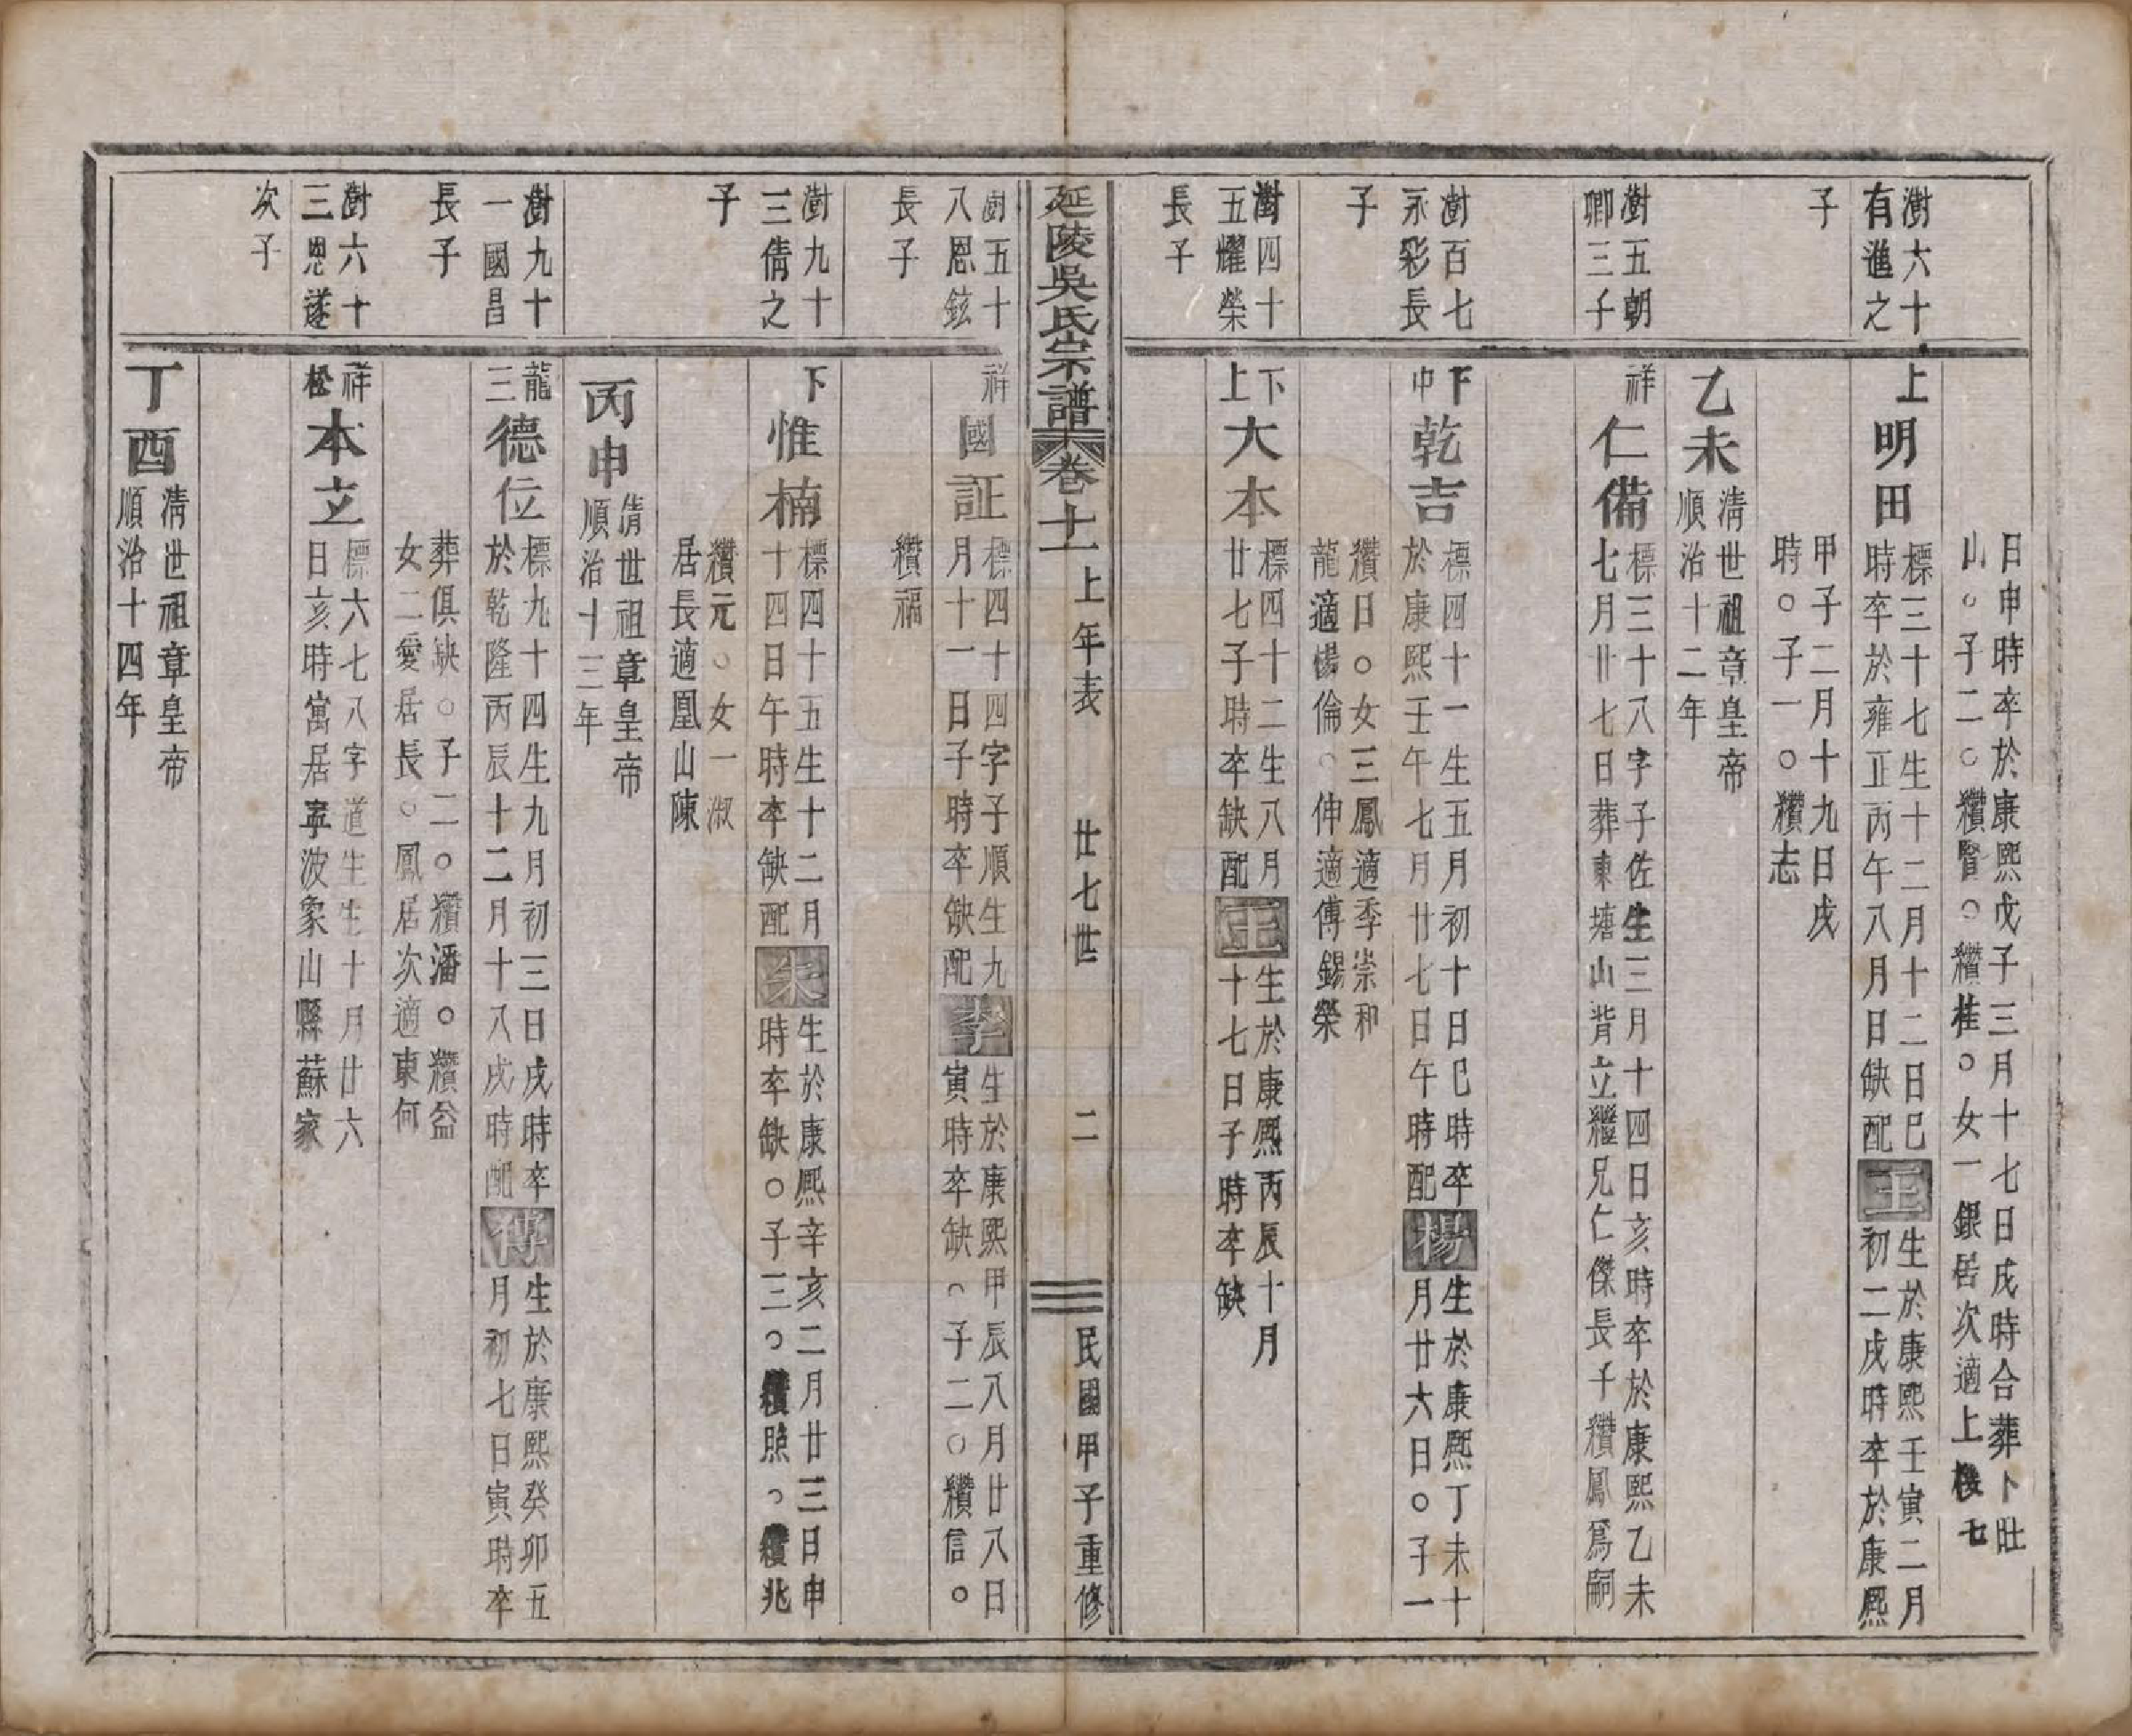 日申時卒於康熙戊子三月十七日戌時合葬卜旺
山○子二○纘賢○纘桂○女一銀居次適上樓七
澍六十
有進之
子
上
明田
標三十七生十二月十二日巳
時卒於雍正丙午八月日缺配
王
生於康熙壬寅二月
初二戌時卒於康熙
甲子二月十九日戌
時○子一○纘志
乙未
清世祖章皇帝
順治十二年
澍五朝
卿三子
祥
仁備
標三十八字子佐生三月十四日亥時卒於康熙乙未
七月廿七日葬東塘山背立繼兄仁傑長子纘鳳爲嗣
澍百七
永彩長
子
下
中
乾吉
標四十一生五月初十日巳時卒
於康熙壬午七月廿七日午時配
楊
生於康熙丁未十
月廿六日○子一
纘日○女三鳳適季崇和
龍適楊倫○伸適傅錫榮
澍四十
五耀榮
長子
下
上
大本
標四十二生八月
廿七子時卒缺配
王
生於康熙丙辰十月
十七日子時卒缺
延陵吳氏宗譜
卷十一
上年表
廿七世
二
民國甲子重修
澍五十
八恩鉉
長子
祥
國証
標四十四字子順生九
月十一日子時卒缺配
李
生於康熙甲辰八月廿八日
寅時卒缺○子二○纘信○
纘福
澍九十
三倩之
子
下
惟楠
標四十五生十二月
十四日午時卒缺配
朱
生於康熙辛亥二月廿三日申
時卒缺○子三○纘照○纘兆
纘元○女一淑
居長適凰山陳
丙申
清世祖章皇帝
順治十三年
澍九十
一國昌
長子
龍
三
德位
標九十四生九月初三日戌時卒
於乾隆丙辰十二月十八戌時配
傅
生於康熙癸卯五
月初七日寅時卒
葬俱缺○子二○纘潘○纘益
女二愛居長○鳳居次適東何
澍六十
三恩遂
次子
祥
松
本立
標六七八字道生生十月廿六
日亥時寓居寧波象山縣蘇家
丁酉
清世祖章皇帝
順治十四年